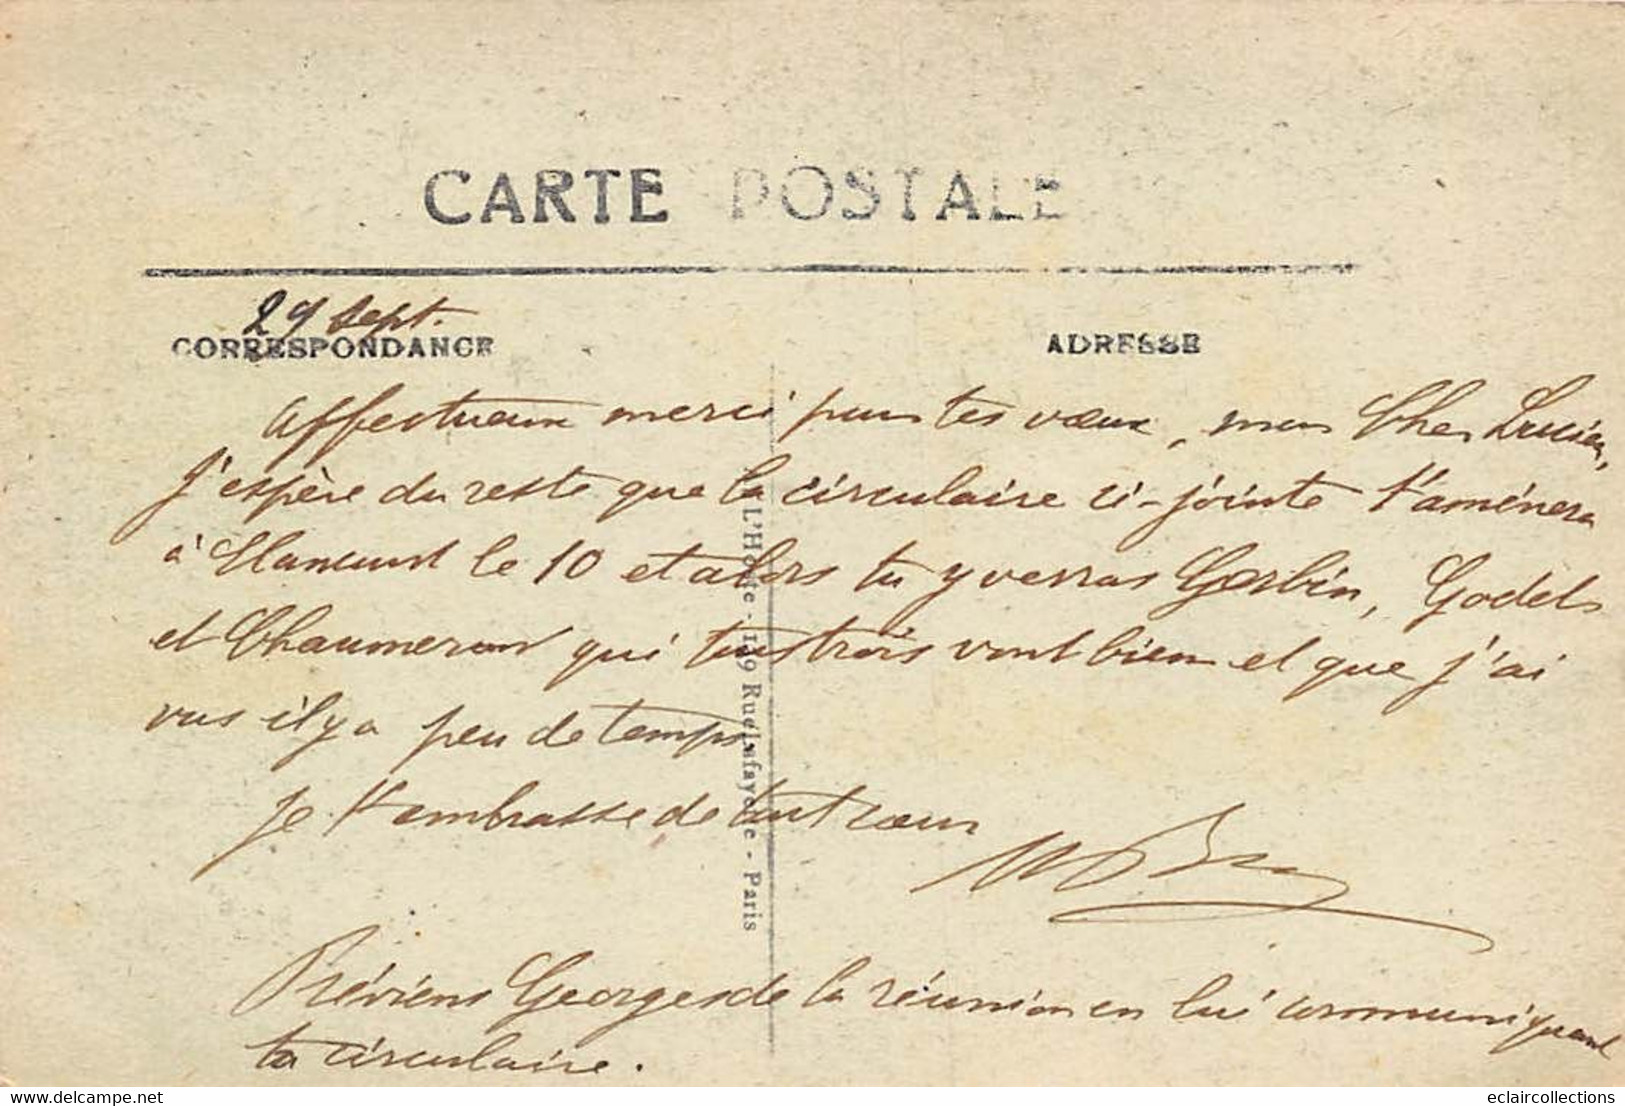 CARTE POSTALE
29 Sept.
CORRESPONDANCE
ADRESSE
Affectueux merci pour tes vœux, mon Cher Lucien,
J'espère du reste que la circulaire ci-jointe t'aménera
à Elancourt le 10 et alors tu y verras Gerbin, Godels
et Chaumeron qui tous trois vont bien et que j'ai
vus il y a peu de temps.
Je t'embrasse de tout cœur
Préviens Georges de la réunion en lui communiquant
ta circulaire.
L'Hoste - 139 Rue Lafayette - Paris
delcampe.net
eclaircollections